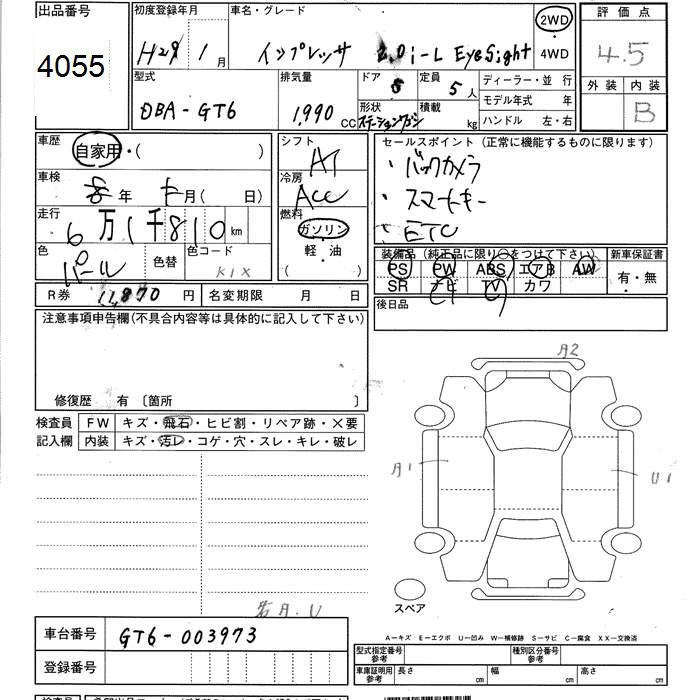 出品番号
4055
初度登録年月
H29年 1月
車名・グレード
インプレッサ 2.0i-L EyeSight
2WD
4WD
評価点
4.5
外装 内装
B
型式
DBA-GT6
排気量
1,990 CC
ドア 5
形状
ステーションワゴン
定員 5人
積載 kg
ディーラー・並行
モデル年式 年
ハンドル 左・右
車歴
自家用・( )
車検
年 月( 日)
走行
6万1千810km
色
パール
色替
色コード
K1X
シフト
AT
冷房
ACC
燃料
ガソリン
軽・油
( )
セールスポイント(正常に機能するものに限ります)
・バックカメラ
・スマートキー
・ETC
装備品(純正品に限り○をつけて下さい)
PS PW ABS エアB AW
SR ナビ TV カワ
新車保証書
有・無
後日品
R券 11,870円
名変期限 月 日
注意事項申告欄(不具合内容等は具体的に記入して下さい)
修復歴 有〔箇所 〕
検査員
記入欄
FW キズ・飛石・ヒビ割・リペア跡・×要
内装 キズ・汚レ・コゲ・穴・スレ・キレ・破レ
A2
A1
U1
スペア
若A.U
A-キズ E-エクボ U-凹み W-補修跡 S-サビ C-腐食 XX-交換済
車台番号 GT6-003973
登録番号
型式指定番号
参考
種別区分番号
参考
車庫証明用
参考
長さ cm 幅 cm 高さ cm